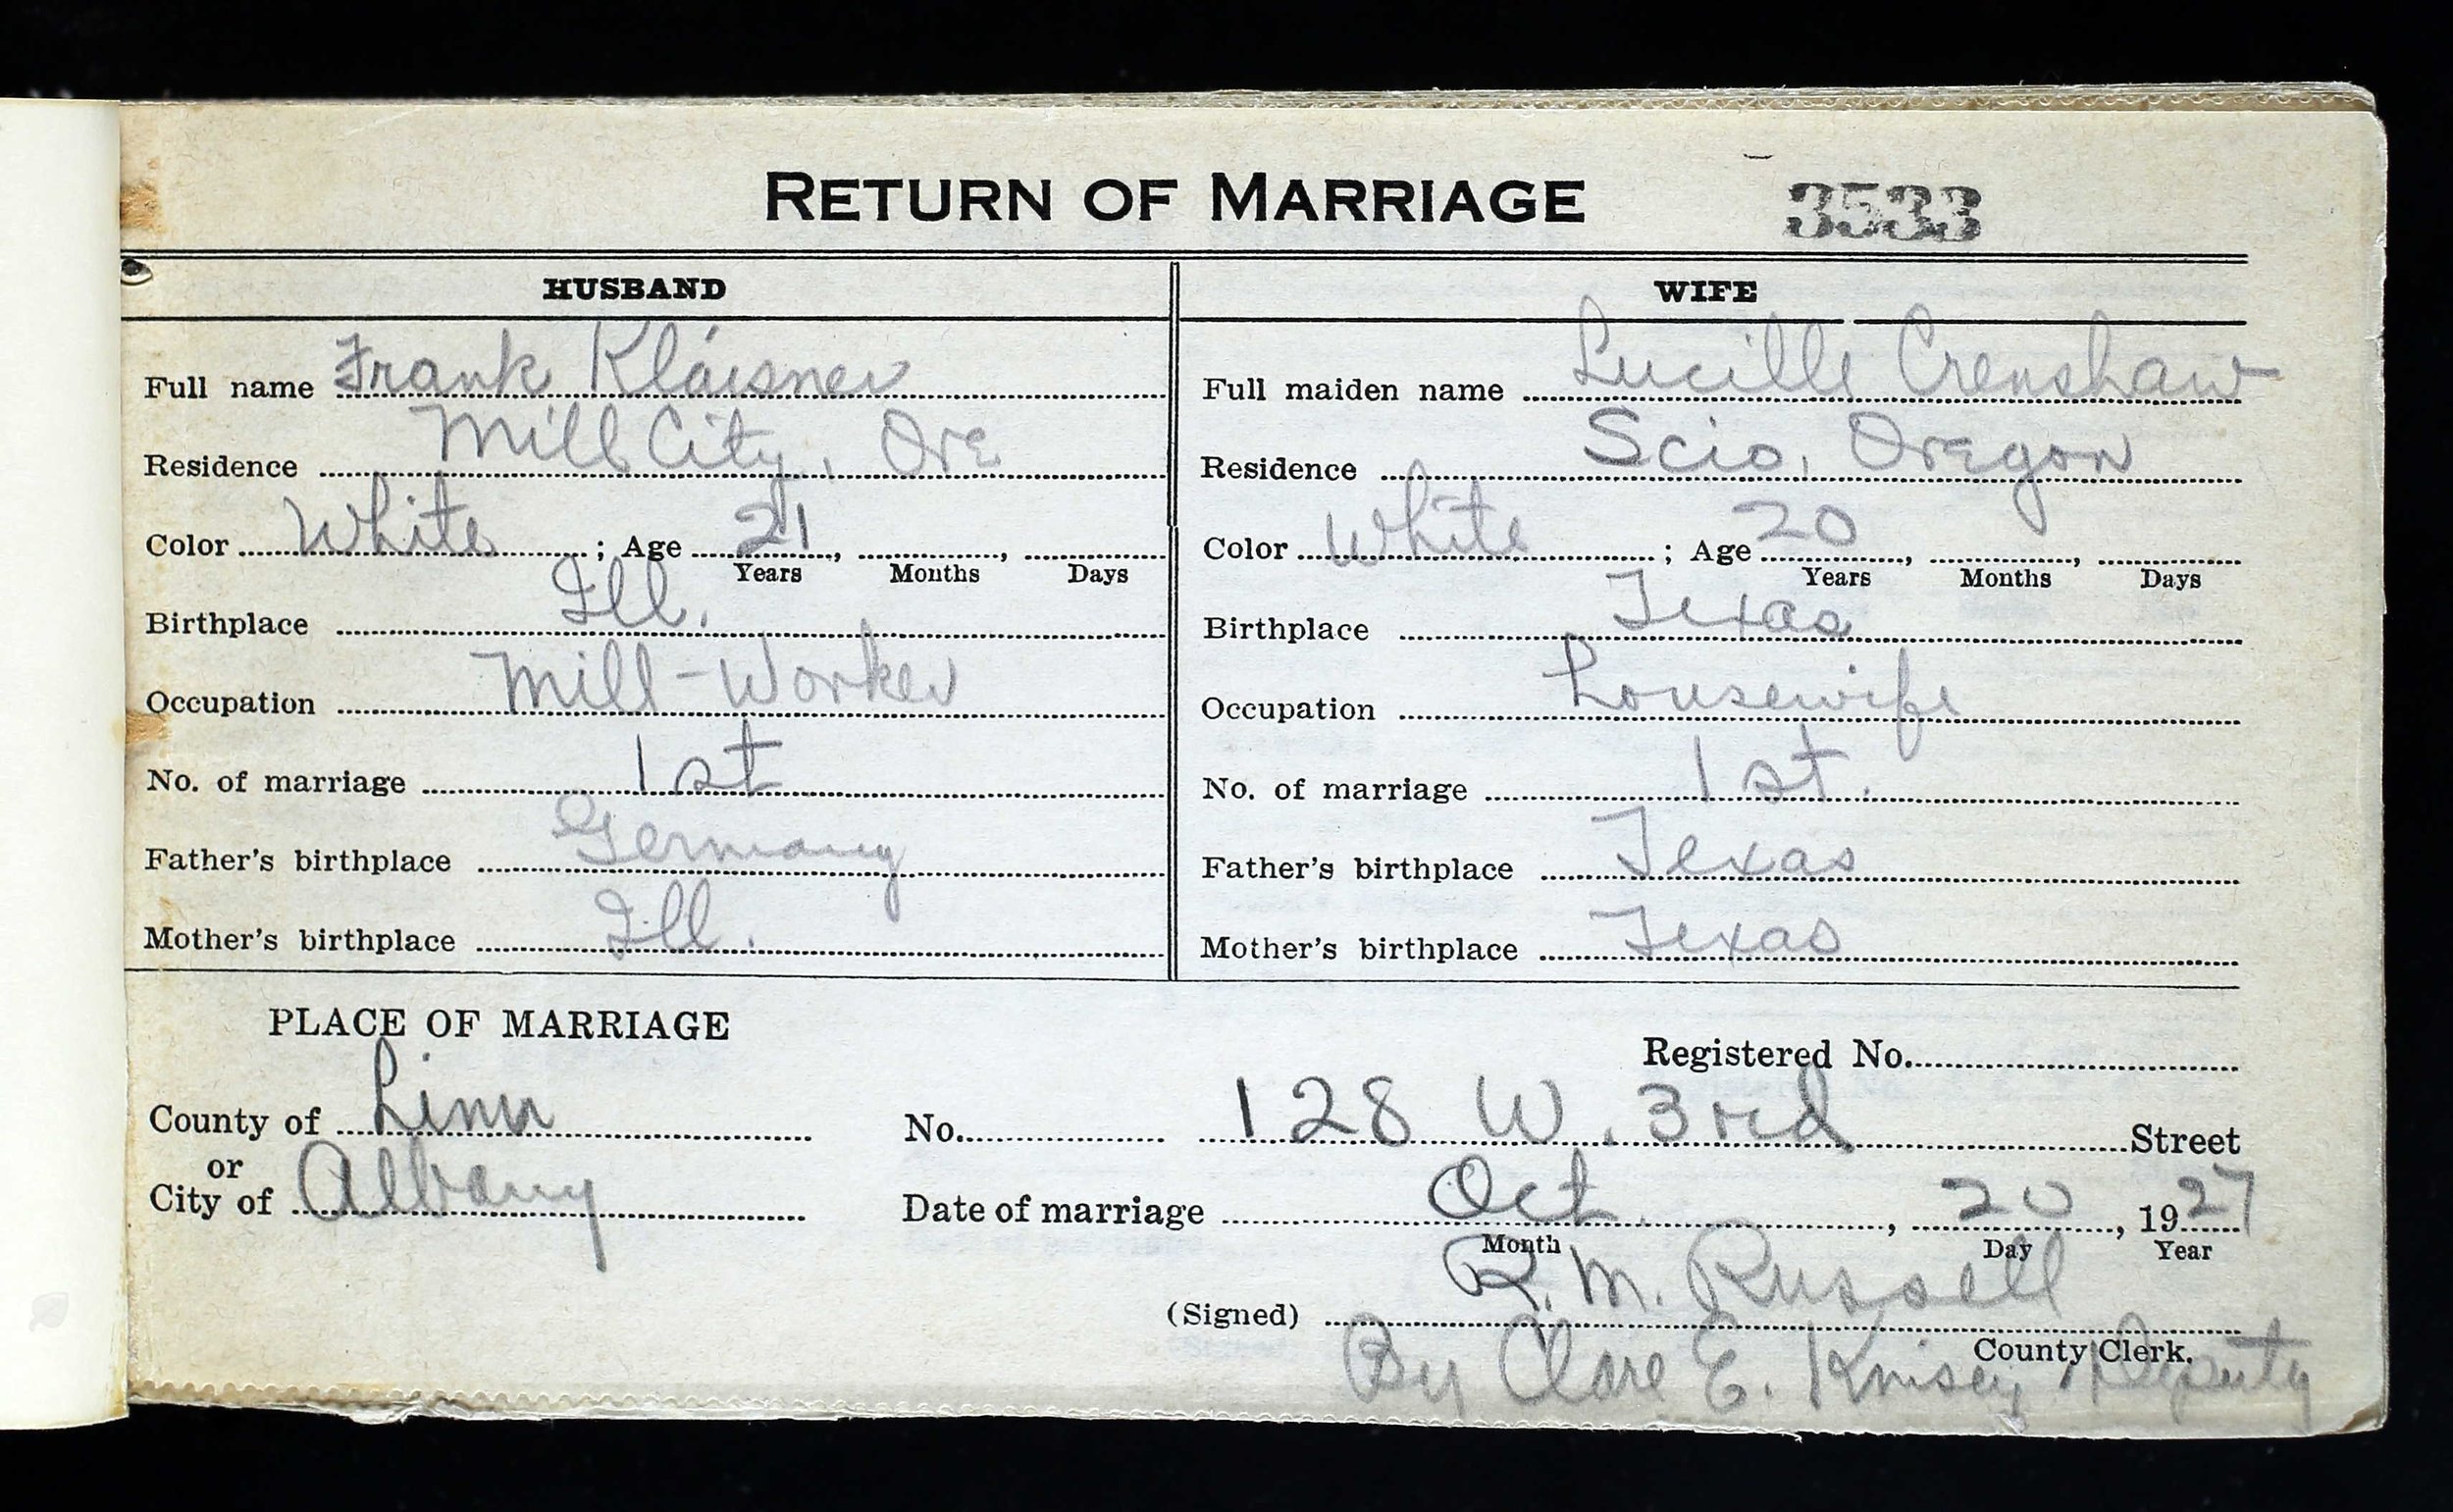 RETURN OF MARRIAGE 3533
HUSBAND
Full name Frank Klaisner
Residence Mill City, Ore
Color White ; Age 21 , ,
Years Months Days
Birthplace Ill.
Occupation Mill-Worker
No. of marriage 1st
Father's birthplace Germany
Mother's birthplace Ill.
WIFE
Full maiden name Lucille Crenshaw
Residence Scio, Oregon
Color White ; Age 20 , ,
Years Months Days
Birthplace Texas
Occupation housewife
No. of marriage 1st.
Father's birthplace Texas
Mother's birthplace Texas
PLACE OF MARRIAGE
Registered No.
County of Linn
or
City of Albany
No. 128 W. 3rd Street
Date of marriage Oct. , 20 , 1927
Month Day Year
(Signed) R. M. Russell
County Clerk.
By Clare E. Knisey, Deputy